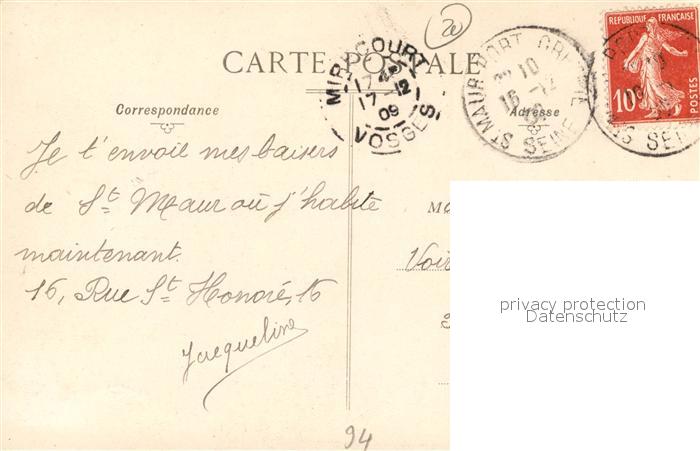 20
CARTE POSTALE
MIRECOURT
17-12
09
VOSGES
ST MAUR-PORT CRETEIL
SEINE
REPUBLIQUE FRANÇAISE
10c
POSTES
SEINE
Correspondance
Adresse
Je t'envoie mes baisers
de St Maur où j'habite
maintenant.
16, Rue St Honoré, 16
Jacqueline
Voir
privacy protection
Datenschutz
94